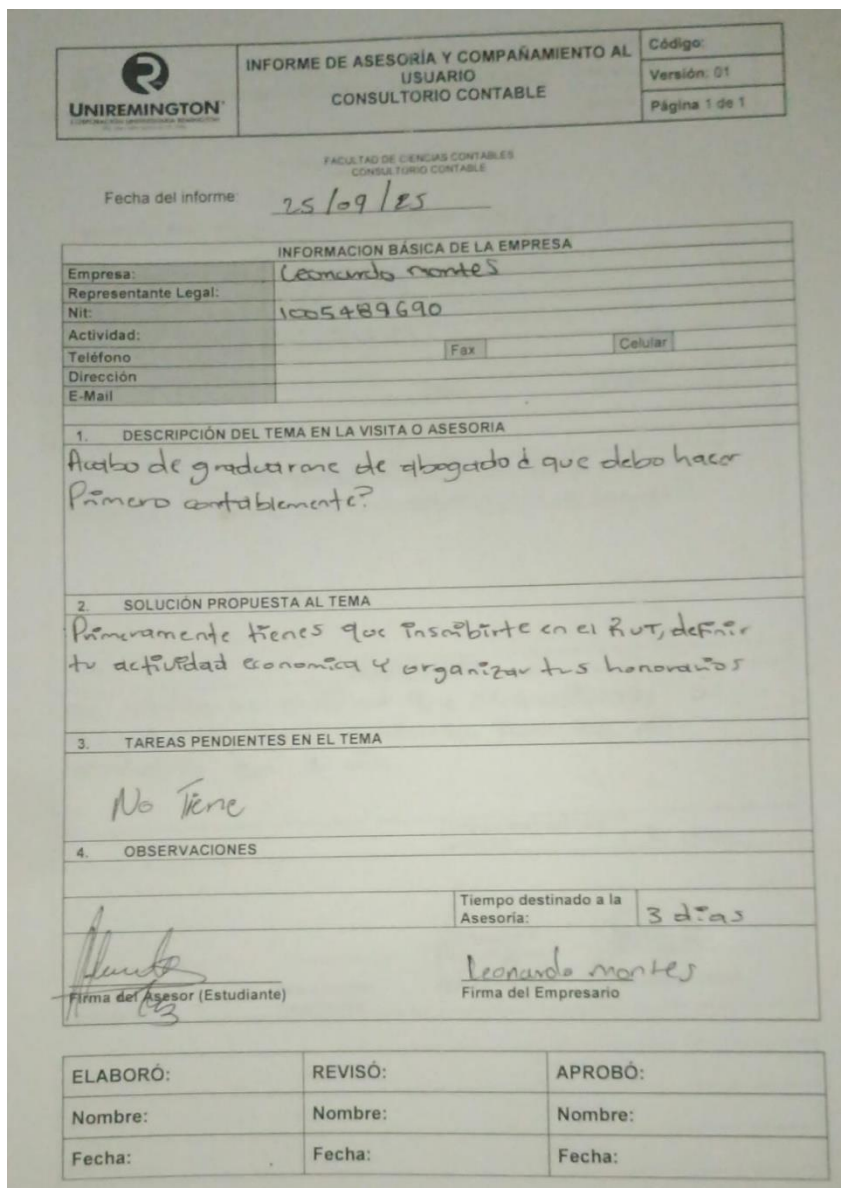 UNIREMINGTON
INFORME DE ASESORÍA Y COMPAÑAMIENTO AL
USUARIO
CONSULTORIO CONTABLE
Código:
Versión: 01
Página 1 de 1
FACULTAD DE CIENCIAS CONTABLES
CONSULTORIO CONTABLE
Fecha del informe: 25/09/25
INFORMACION BÁSICA DE LA EMPRESA
Empresa: Leonardo montes
Representante Legal:
Nit: 1005489690
Actividad:
Teléfono Fax Celular
Dirección
E-Mail
1. DESCRIPCIÓN DEL TEMA EN LA VISITA O ASESORIA
Acabo de graduarme de abogado ¿ que debo hacer
Primero contablemente?
2. SOLUCIÓN PROPUESTA AL TEMA
Primeramente tienes que inscribirte en el RUT, definir
tu actividad economica y organizar tus honorarios
3. TAREAS PENDIENTES EN EL TEMA
No Tiene
4. OBSERVACIONES
Tiempo destinado a la
Asesoría: 3 dias
Leonardo montes
Firma del Asesor (Estudiante) Firma del Empresario
ELABORÓ: REVISÓ: APROBÓ:
Nombre: Nombre: Nombre:
Fecha: Fecha: Fecha: